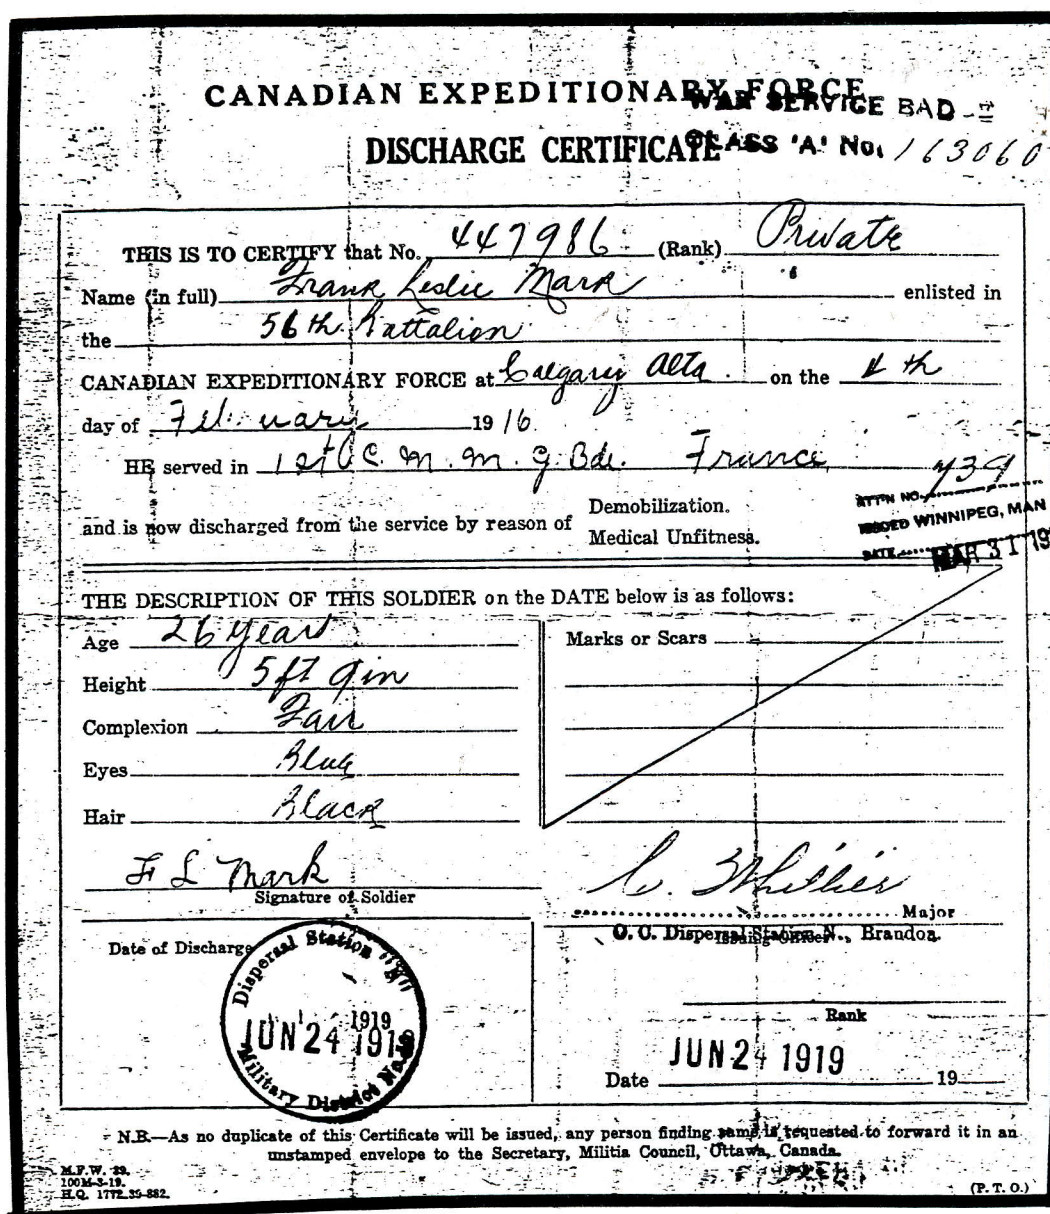 CANADIAN EXPEDITIONARY FORCE
WAR SERVICE BAD
DISCHARGE CERTIFICATE
CLASS 'A' No. 163060
THIS IS TO CERTIFY that No. 447986 (Rank) Private
Name (in full) Frank Leslie Mark enlisted in
the 56th Battalion
CANADIAN EXPEDITIONARY FORCE at Calgary Alta. on the 4th
day of February 1916.
HE served in 1st C. M. M. G. Bde. France
and is now discharged from the service by reason of
Demobilization.
Medical Unfitness.
ATT'N NO. 739
ISSUED WINNIPEG, MAN
DATE MAR 31 19
THE DESCRIPTION OF THIS SOLDIER on the DATE below is as follows:
Age 26 years
Height 5ft 9in
Complexion Fair
Eyes Blue
Hair Black
Marks or Scars
F L Mark
Signature of Soldier
C. Whillier
Major
O. C. Dispersal Station N., Brandon.
Issuing Officer
Rank
Date of Discharge
Dispersal Station
JUN 24 1919
1919
Military District
JUN 24 1919
Date 19
N.B.—As no duplicate of this Certificate will be issued, any person finding same is requested to forward it in an
unstamped envelope to the Secretary, Militia Council, Ottawa, Canada.
M.F.W. 39.
100M-3-19.
H.Q. 1772-39-882.
(P. T. O.)